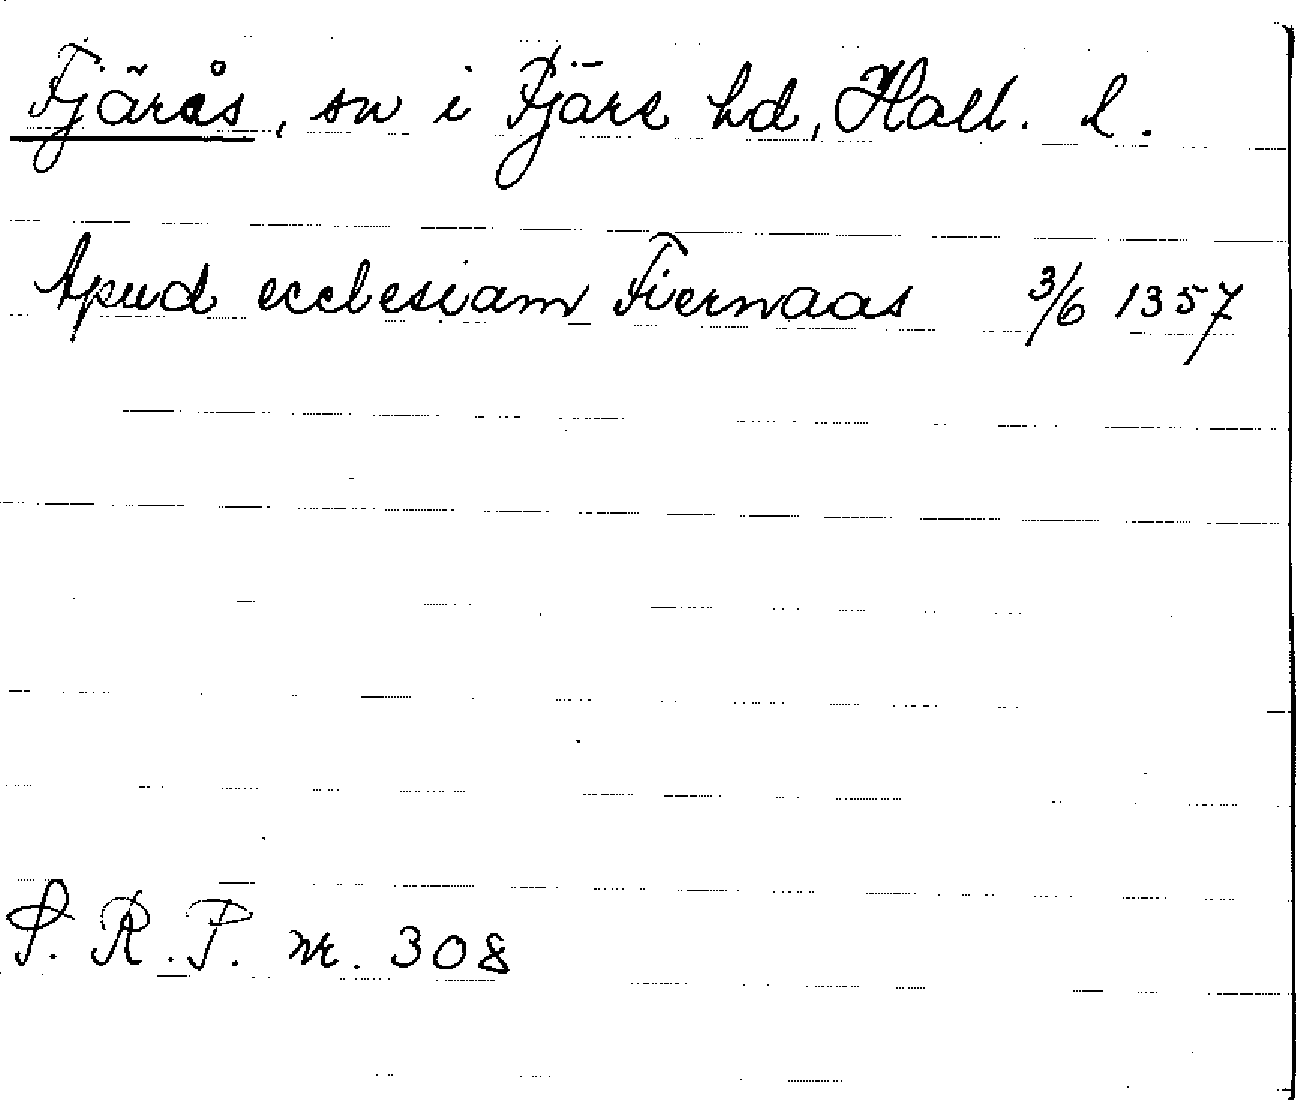 Fjärås, sn i Fjäre hd, Hall. l.
Apud ecclesiam Fiernaas 3/6 1357
S. R. P. nr. 308